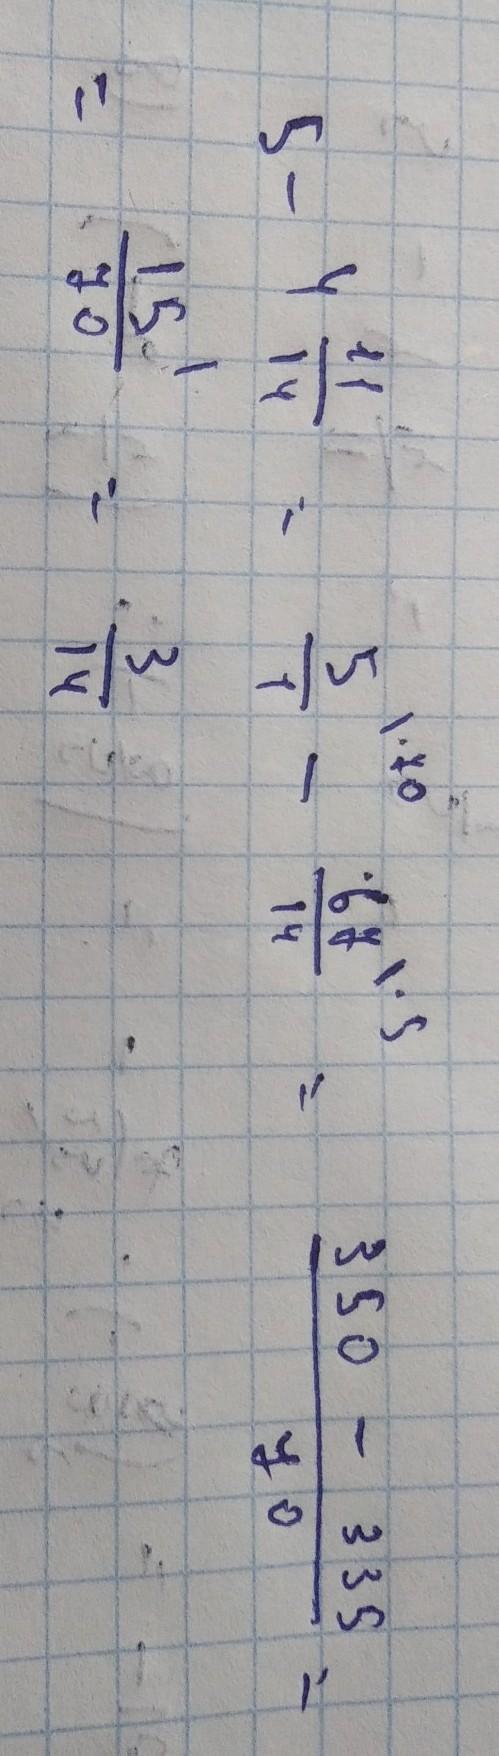 5 - 4 11/14 = 5/1 \·70 - 67/14 \·5 = 350 - 335/70 =
= 15/70 \ = 3/14